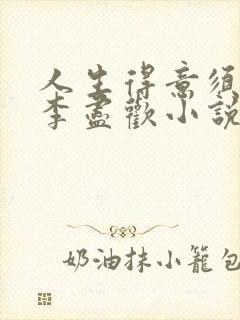 人生得意須
李盡歡小說
奶油抹小籠包